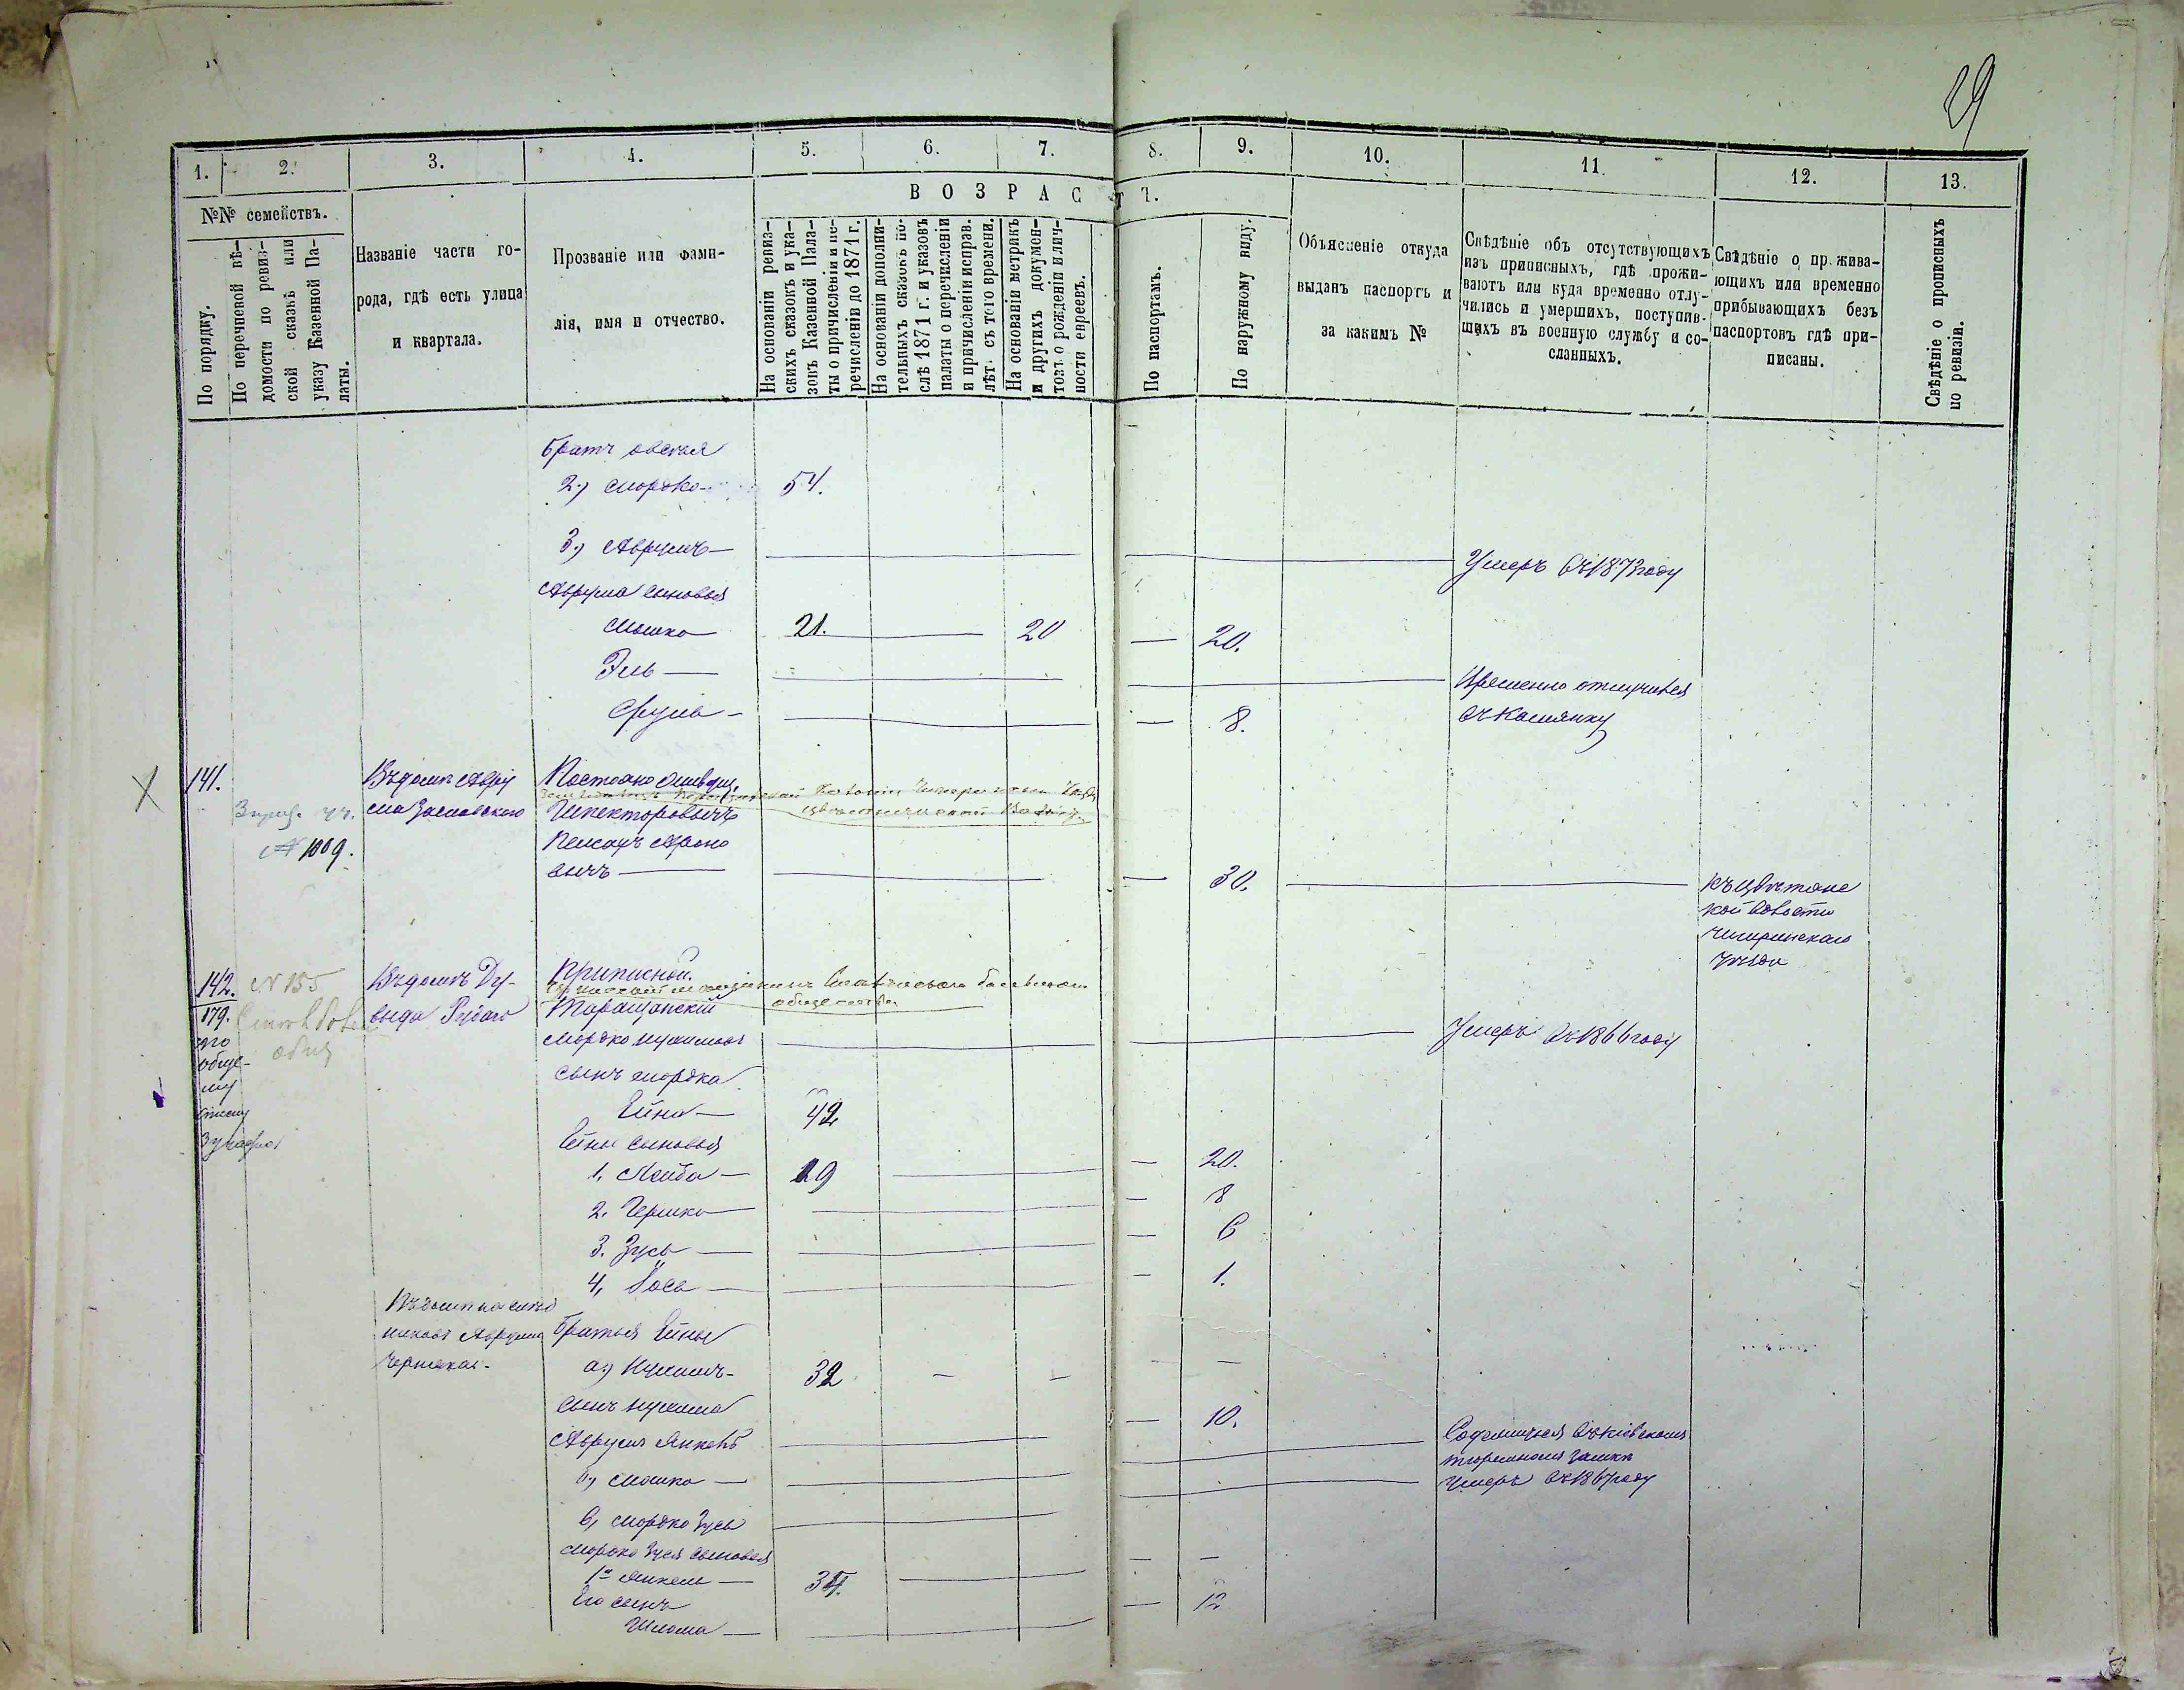 29
1. 2. 3. 4. 5. 6. 7. 8. 9. 10. 11. 12. 13.
№№ семействъ.
По порядку.
По перечневой вѣ-
домости по ревиз-
ской сказкѣ или
указу Казенной Па-
латы.
Названіе части го-
рода, гдѣ есть улица
и квартала.
Прозваніе или фами-
лія, имя и отчество.
ВОЗРАСТЪ.
На основаніи ревиз-
скихъ сказокъ и ука-
зовъ Казенной Пала-
ты о причисленіи и пе-
речисленіи до 1871 г.
На основаніи дополни-
тельныхъ сказокъ по-
слѣ 1871 г. и указовъ
палаты о перечисленіи
и причисленіи исправ.
лѣт. съ того времени.
На основаніи метрикъ
и другихъ докумен-
товъ о рожденіи и лич-
ности евреевъ.
По паспортамъ.
По наружному виду.
Объясненіе откуда
выданъ паспортъ и
за какимъ №
Свѣдѣніе объ отсутствующихъ
изъ приписныхъ, гдѣ прожи-
ваютъ или куда временно отлу-
чились и умершихъ, поступив-
шихъ въ военную службу и со-
сланныхъ.
Свѣдѣніе о прожива-
ющихъ или временно
прибывающихъ безъ
паспортовъ гдѣ при-
писаны.
Свѣдѣніе о прописныхъ
по ревизіи.
братъ
2.) Мордко 54.
3.) Аврумъ — Умеръ въ 1873 году
Аврума сыновья
Мошко 21. — 20 — 20.
Эль — Временно отлучился
Сруль — 8. въ Камянку
141. Въ домѣ Авру
ма Заславскаго
№ 1009.
Пейсахъ Ароно
вичъ — 30. — къ Цвѣтянс
кой волости
Чигиринскаго
уѣзда
142. № 155 Въ домѣ Ду-
выда Рудаго
Приписной.
общества
179.
по
обще-
му
списку
Таращанскій
Мордко — Умеръ въ 1866 году
сынъ Мордка
Ейна — 42
Ейны сыновья
1. Лейба — 19 — 20.
2. Гершко — 8
3. Зусь — 6
4, Іось — 1.
Аврума
братья Ейны
а.) Нухимъ - 32 - - - -
сынъ Нухима
Аврумъ Янкель — 10. Содержится въ Кіевскомъ
тюремномъ замкѣ
б) Мошко — Умеръ въ 1867 году
в, Мордко Зусь
Мордко Зуся сыновья
1й Янкель — 34. — - -
Его сынъ
Шлома — 12